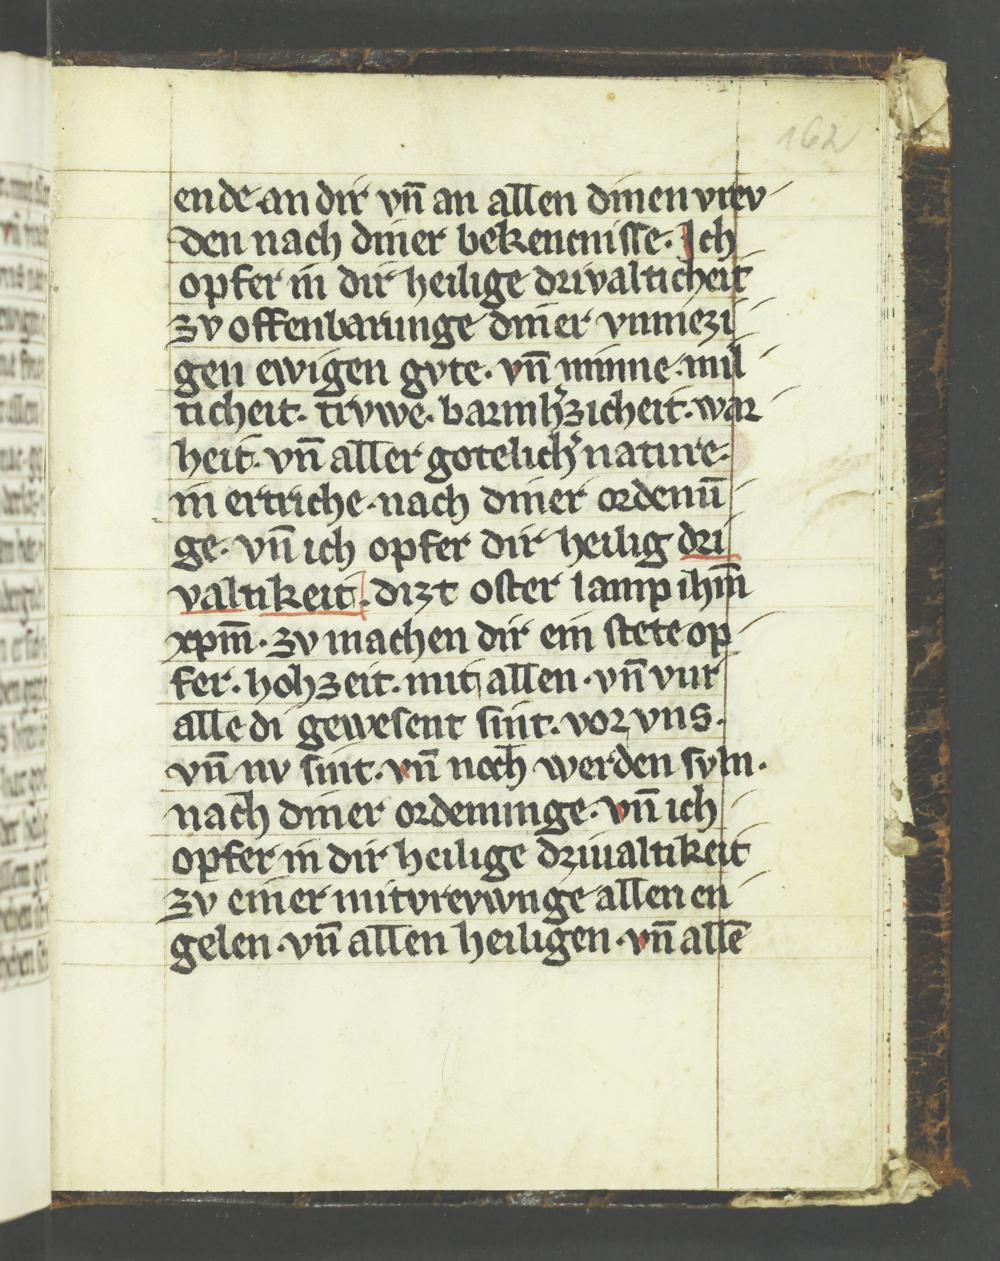 162
ende·an dir vn̄ an allen dinen vrev
den nach diner bekencnisse. Ich
opfer in dir heilige drivalticheit
zv offenbarunge diner vnmezi
gen ewigen gvte. vn̄ minne·mil
ticheit. trvwe. barmh̾zicheit·war
heit. vn̄ aller gotelich̾ nature.
in ertriche·nach diner ordenū
ge. vn̄ ich opfer dir heilig dri
valtikeit. dizt oster lamp ihm̄
xpm̄. zv machen dir ein stete op
fer. hohzeit. mit allen. vn̄ vur
alle di gewesent sint. vor vns.
vn̄ nv sint. vn̄ noch werden svln.
nach diner ordenunge. vn̄ ich
opfer in dir heilige driualtikeit
zv einer mitvrevwnge allen en
gelen. vn̄ allen heiligen. vn̄ allē